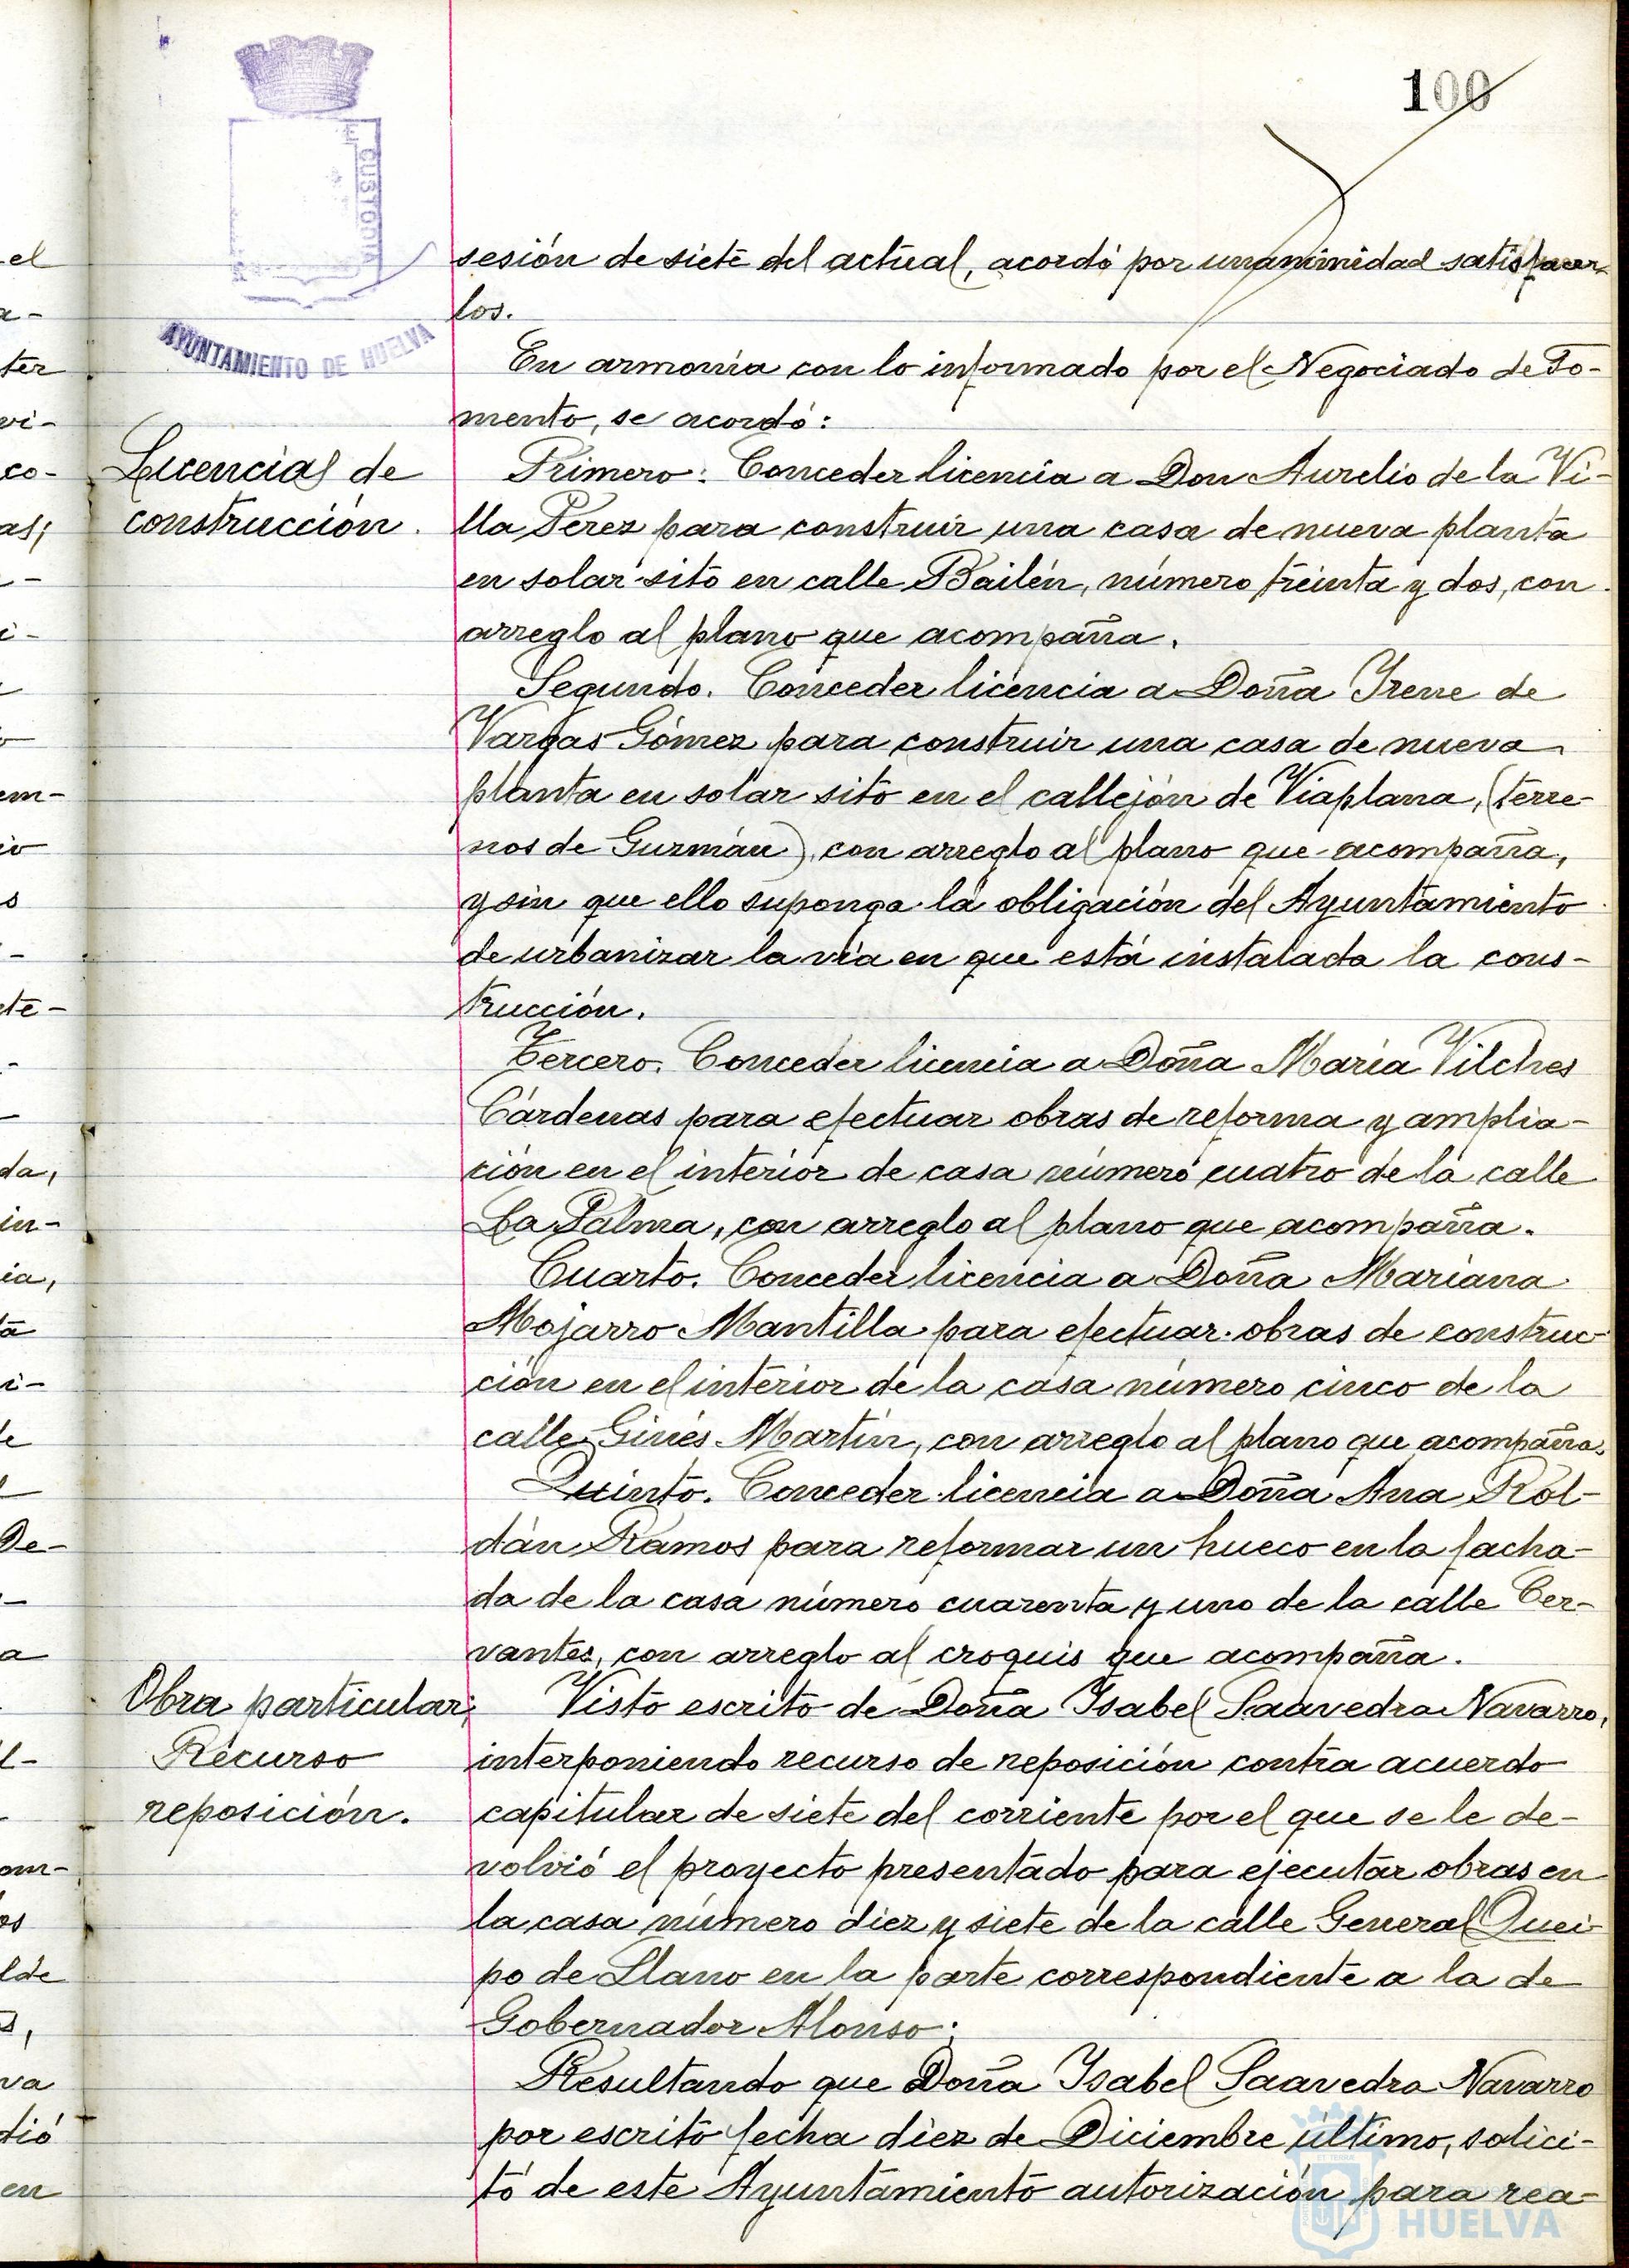 100
E CUSTODIA
AYUNTAMIENTO DE HUELVA
sesión de siete del actual, acordó por unanimidad satisfacer-
los.
En armonía con lo informado por el Negociado de Fo-
mento, se acordó:
Licencias de
construcción.
Primero: Conceder licencia a Don Aurelio de la Vi-
lla Pérez para construir una casa de nueva planta
en solar sito en calle Bailén, número treinta y dos, con
arreglo al plano que acompaña.
Segundo. Conceder licencia a Doña Irene de
Vargas Gómez para construir una casa de nueva
planta en solar sito en el callejón de Viaplana, (terre-
nos de Guzmán), con arreglo al plano que acompaña,
y sin que ello suponga la obligación del Ayuntamiento
de urbanizar la vía en que está instalada la cons-
trucción.
Tercero. Conceder licencia a Doña María Vilches
Cárdenas para efectuar obras de reforma y amplia-
ción en el interior de casa número cuatro de la calle
La Palma, con arreglo al plano que acompaña.
Cuarto. Conceder licencia a Doña Mariana
Mojarro Mantilla para efectuar obras de construc-
ción en el interior de la casa número cinco de la
calle Ginés Martín, con arreglo al plano que acompaña.
Quinto. Conceder licencia a Doña Ana Rol-
dán Ramos para reformar un hueco en la facha-
da de la casa número cuarenta y uno de la calle Cer-
vantes, con arreglo al croquis que acompaña.
Obra particular;
Recurso
reposición.
Visto escrito de Doña Isabel Saavedra Navarro,
interponiendo recurso de reposición contra acuerdo
capitular de siete del corriente por el que se le de-
volvió el proyecto presentado para ejecutar obras en
la casa número diez y siete de la calle General Quei-
po de Llano en la parte correspondiente a la de
Gobernador Alonso;
Resultando que Doña Isabel Saavedra Navarro
por escrito fecha diez de Diciembre último, solici-
tó de este Ayuntamiento autorización para rea-
HUELVA